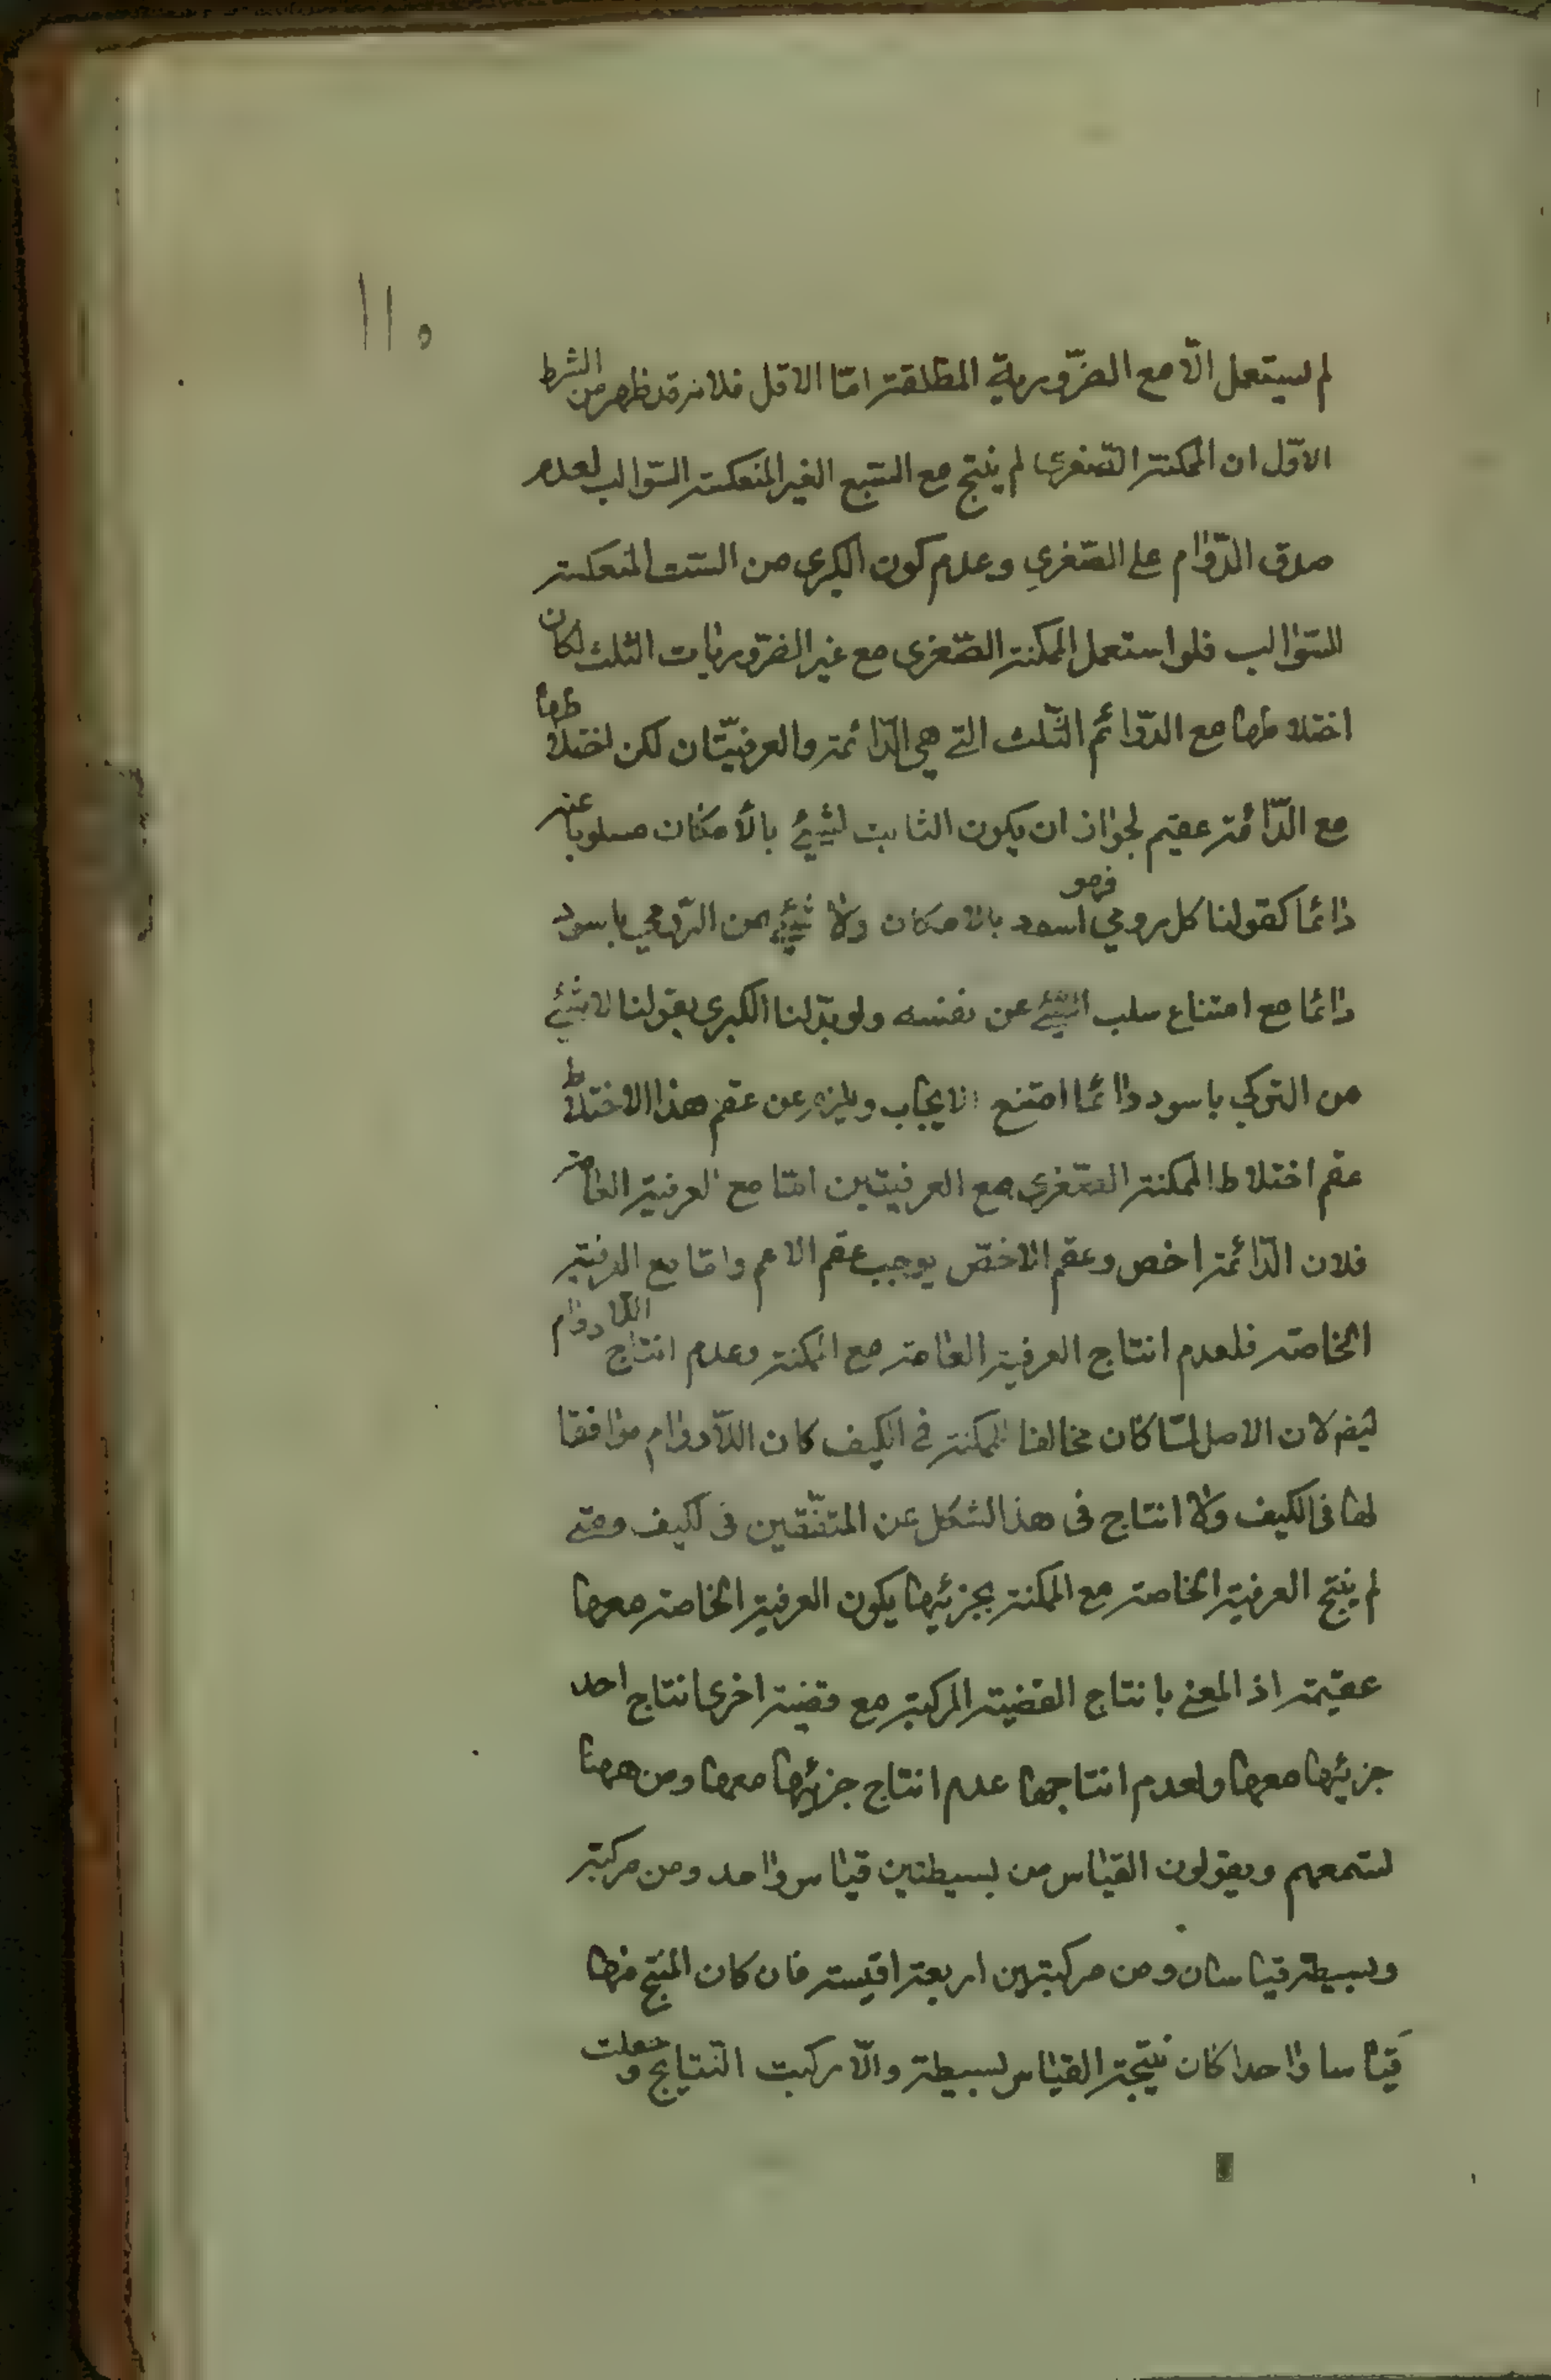 ١١٥
لم يستعمل الّا مع الضّرورية المطلقة امّا الاول فلانه قد ظهر من الشرط
الاوّل ان الممكنة الصّغرى لم ينتج مع السّبع الغير المنعكسة السّوالب لعدم
صدق الدّوام على الصّغرى وعدم كون الكبرى من السّت المنعكسة
السّوالب فلو استعمل الممكنة الصّغرى مع غير الضّروريات الثلث لكان
اختلاطها مع الدّوائم الثّلث التي هي الدّائمة والعرفيّتان لكن اختلاطها
مع الدّائمة عقيم لجواز ان يكون الثابت لشيئ بالأمكان مسلوبا عنه
دائما كقولنا كل رومي فهو اسود بالامكان ولا شيئ من الرّومي باسود
دائما مع امتناع سلب الشيئ عن نفسه ولو بدّلنا الكبرى بقولنا لا شيئ
من التركي باسود دائما امتنع الايجاب ويلزم عن عقم هذا الاختلاط
عقم اختلاط الممكنة الصّغرى مع العرفيتين امّا مع العرفية العامة
فلان الدّائمة اخص وعقم الاخصّ يوجب عقم الاعم وامّا مع العرفية
الخاصة فلعدم انتاج العرفية العامة مع الممكنة وعدم انتاج اللّادوام
ايضم لان الاصل لمّا كان مخالفا للممكنة في الكيف كان اللّادوام موافقا
لها في الكيف ولا انتاج في هذا الشكل عن المتفّقين في الكيف ومتى
لم ينتج العرفية الخاصة مع الممكنة بجزئيها يكون العرفية الخاصة معها
عقيمة اذ المعنى بانتاج القضية المركبة مع قضية اخرى انتاج احد
جزئيها معها ولعدم انتاجها عدم انتاج جزئيها معها ومن ههنا
تسمعهم ويقولون القياس من بسيطتين قياس واحد ومن مركبة
وبسيطة قياسان ومن مركبتين اربعة اقيسة فان كان المنتج منها
قياسا واحدا كان نتيجة القياس بسيطة والّا ركبت النّتايج و جعلت